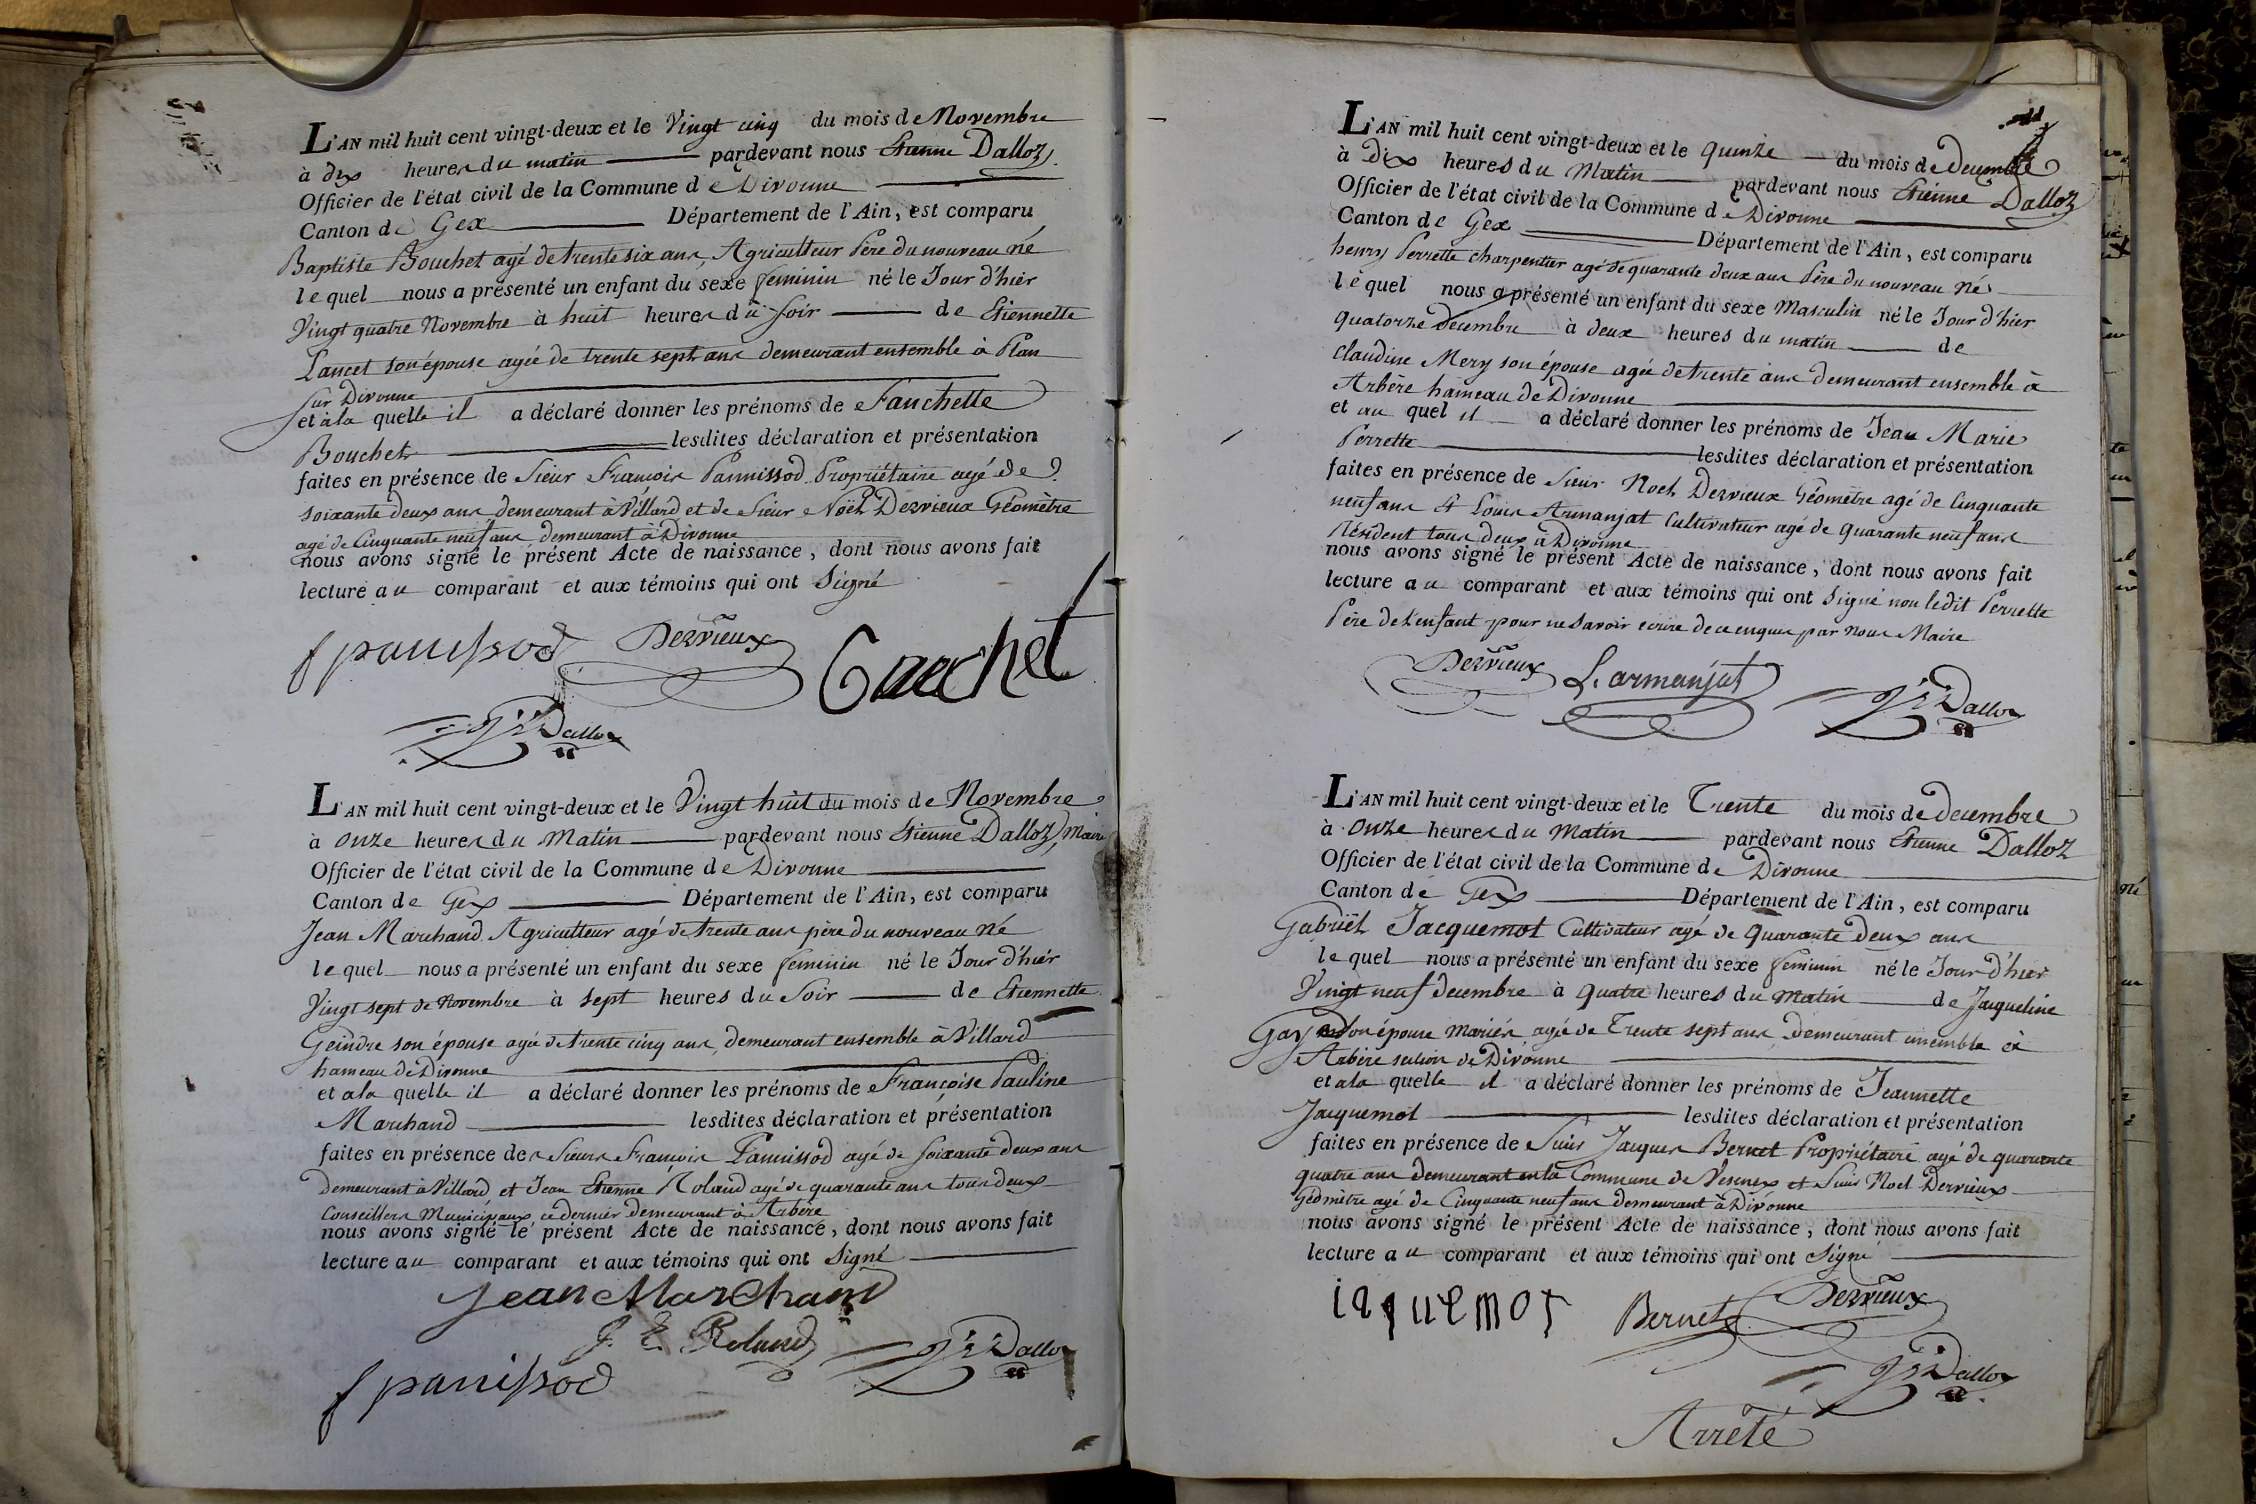 L'AN mil huit cent vingt-deux et le Vingt cinq du mois de Novembre
à dix heures du matin pardevant nous Etienne Dalloz
Officier de l'état civil de la Commune de Divonne
Canton de Gex Département de l'Ain, est comparu
Baptiste Bouchet agé de trente six ans, Agriculteur Père du nouveau né
lequel nous a présenté un enfant du sexe feminin né le Jour d'hier
Vingt quatre Novembre à huit heures du soir de Etiennette
Lancet son épouse agée de trente sept ans demeurant ensemble à Plan
sur Divonne
et à la quelle il a déclaré donner les prénoms de Fanchette
Bouchet lesdites déclaration et présentation
faites en présence de Sieur François Pannissod Propriétaire agé de
soixante deux ans demeurant à Villard et de Sieur Noël Dezvieux Géomètre
agé de Cinquante neuf ans demeurant à Divonne
nous avons signé le présent Acte de naissance, dont nous avons fait
lecture au comparant et aux témoins qui ont Signé
f panissod Dezvieux
Dalloz
L'AN mil huit cent vingt-deux et le Vingt huit du mois de Novembre
à onze heures du Matin pardevant nous Etienne Dalloz, Maire
Officier de l'état civil de la Commune de Divonne
Canton de Gex Département de l'Ain, est comparu
Jean Marchand Agriculteur agé de trente ans père du nouveau né
lequel nous a présenté un enfant du sexe feminin né le Jour d'hier
Vingt sept de Novembre à sept heures du Soir de Etiennette
Geindre son épouse agée de trente cinq ans, demeurant ensemble à Villard
hameau de Divonne
et a la quelle il a déclaré donner les prénoms de Françoise Pauline
Marchand lesdites déclaration et présentation
faites en présence des Sieurs François Pannissod agé de soixante deux ans
demeurant à Villard et Jean Etienne Roland agé de quarante ans tous deux
Conseillers Municipaux ce dernier demeurant à Arbère
nous avons signé le présent Acte de naissance, dont nous avons fait
lecture au comparant et aux témoins qui ont Signé
Jean Marchand
J. E. Roland Dalloz
f panissod
L'AN mil huit cent vingt-deux et le quinze du mois de decembre
à dix heures du Matin pardevant nous Etienne Dalloz
Officier de l'état civil de la Commune de Divonne
Canton de Gex Département de l'Ain, est comparu
henry Perrette charpentier agé de quarante deux ans Père du nouveau né
lequel nous a présenté un enfant du sexe Masculin né le Jour d'hier
quatorze decembre à deux heures du matin de
claudine Mery son épouse agée de trente ans demeurant ensemble à
Arbère hameau de Divonne
et au quel il a déclaré donner les prénoms de Jean Marie
Perrette lesdites déclaration et présentation
faites en présence de Sieur Noel Dezvieux Géomètre agé de Cinquante
neuf ans et Louis Armanjat Cultivateur agé de quarante neuf ans
Résident tous deux à Divonne
nous avons signé le présent Acte de naissance, dont nous avons fait
lecture au comparant et aux témoins qui ont Signé non ledit Perrette
Père de l'enfant pour ne savoir ecrire de ce enquis par nous Maire
Dezvieux L. armanjat Dalloz
L'AN mil huit cent vingt-deux et le Trente du mois de decembre
à onze heures du Matin pardevant nous Etienne Dalloz
Officier de l'état civil de la Commune de Divonne
Canton de Gex Département de l'Ain, est comparu
Gabriël Jacquemot Cultivateur agé de quarante deux ans
lequel nous a présenté un enfant du sexe feminin né le Jour d'hier
Vingt neuf decembre à quatre heures du matin de Jacqueline
Gay son épouse mariés agée de Trente sept ans, demeurant ensemble à
Arbère section de Divonne
et a la quelle il a déclaré donner les prénoms de Jeannette
Jacquemot lesdites déclaration et présentation
faites en présence de Sieurs Jacques Bernet Propriétaire agé de quarante
quatre ans demeurant en la Commune de Vesenex et Sieur Noel Dervieux
Géomètre agé de Cinquante neuf ans demeurant à Divonne
nous avons signé le présent Acte de naissance, dont nous avons fait
lecture au comparant et aux témoins qui ont Signé
iaquemot Bernet Dezvieux
Dalloz
Arrêté